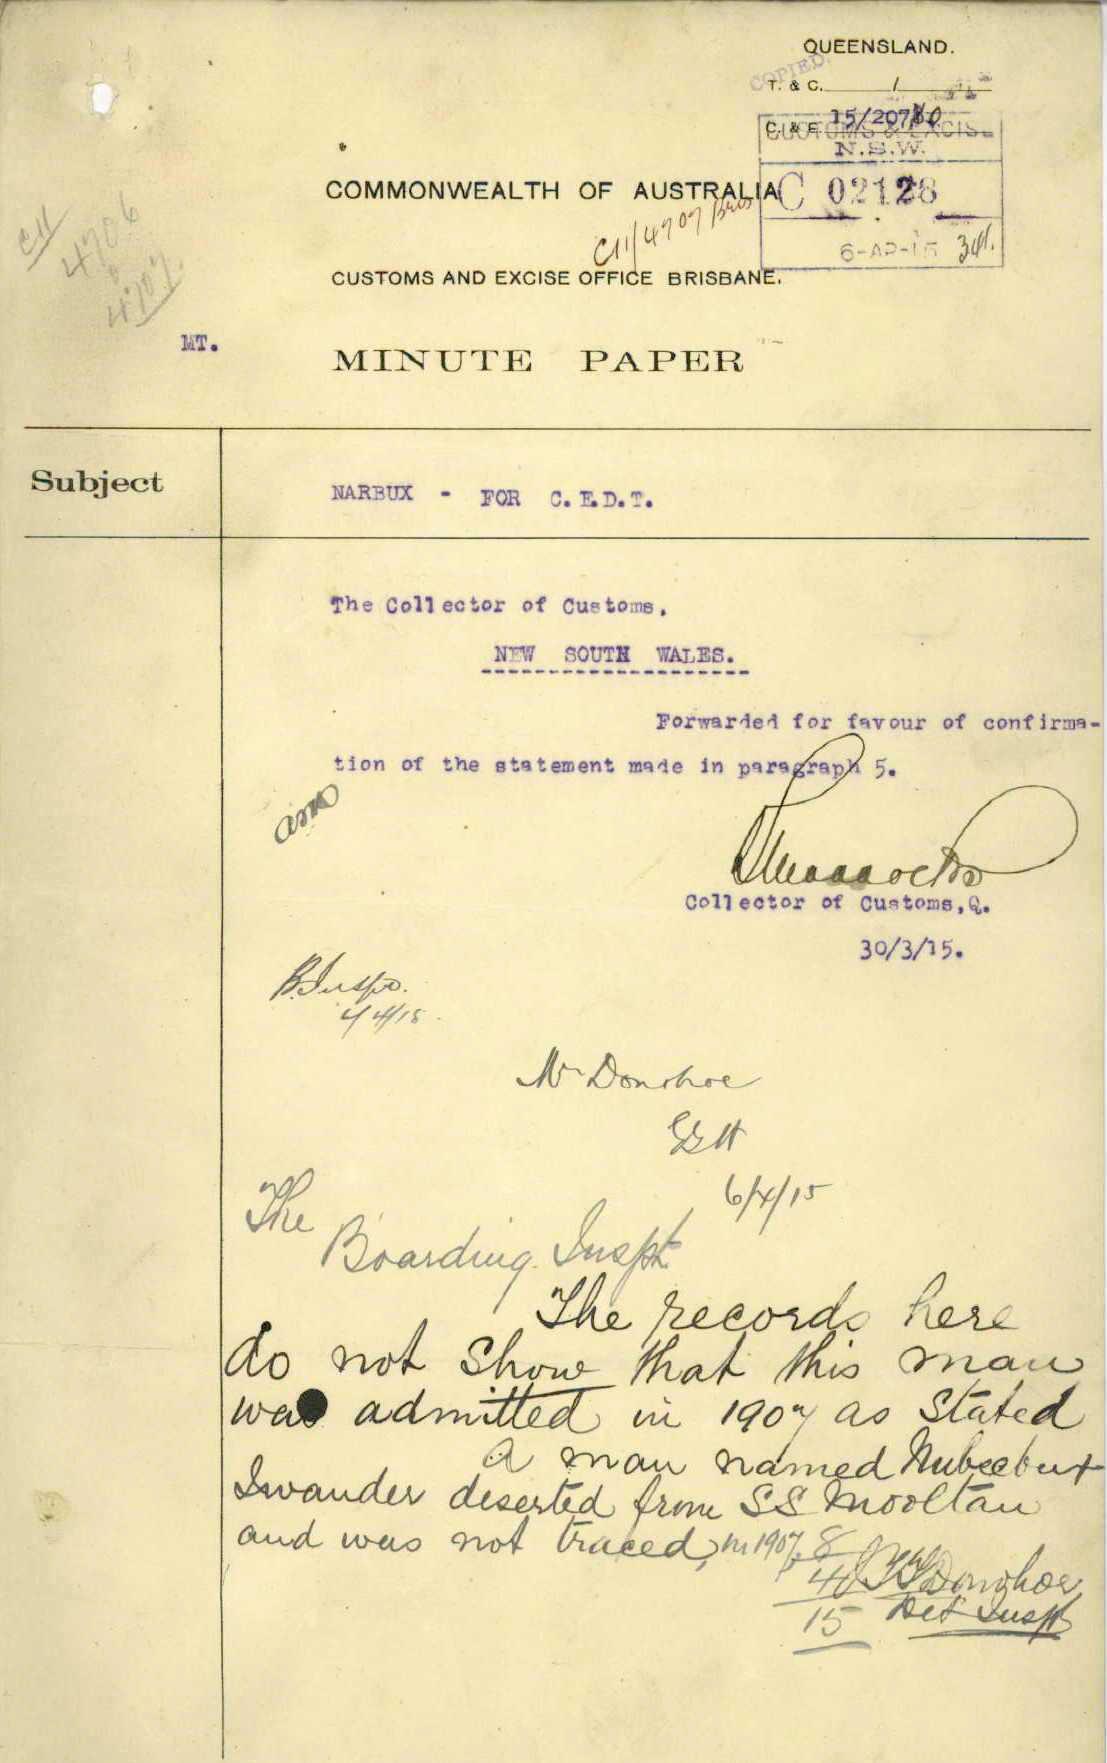 QUEENSLAND.
COPIED.
T. & C. /
C. & E. 15/207
CUSTOMS & EXCISE
N.S.W.
C 02128
6-AP-15
COMMONWEALTH OF AUSTRALIA
C11/4707 Bris
C11
4706
4707
CUSTOMS AND EXCISE OFFICE BRISBANE.
MT.
MINUTE PAPER
Subject
NARBUX - FOR C.E.D.T.
The Collector of Customs.
NEW SOUTH WALES.
Forwarded for favour of confirma-
tion of the statement made in paragraph 5.
Collector of Customs, Q.
30/3/15.
B. Insp.
4/15
Mr Donohoe
6/4/15
The
Boarding Inspt
The records here
do not show that this man
was admitted in 1907 as stated
A man named Nubeebux
Iwander deserted from SS Mooltan
and was not traced, in 1907
8
4
15
Donohoe
Det Inspt